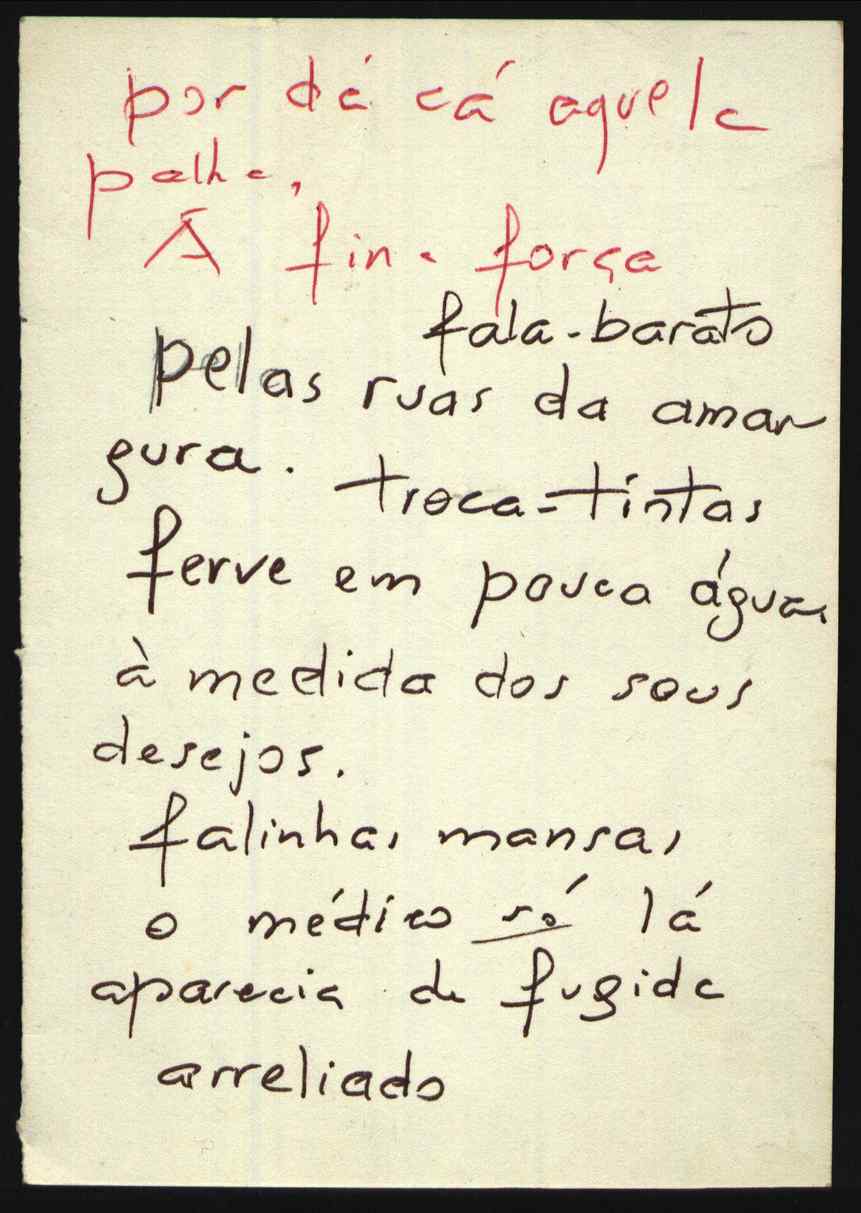 por dá cá aquela
palha,
À fina força
fala-barato
pelas ruas da amar
gura.
troca-tintas
ferve em pouca água
à medida dos sous
desejos.
falinhas mansas
o médico só lá
aparecia de fugida
arreliado